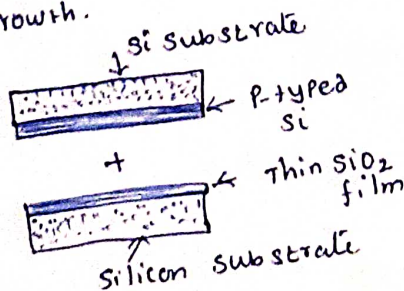 rowth.
Si substrate
P-typed
Si
+
Thin SiO2
film
Silicon substrate